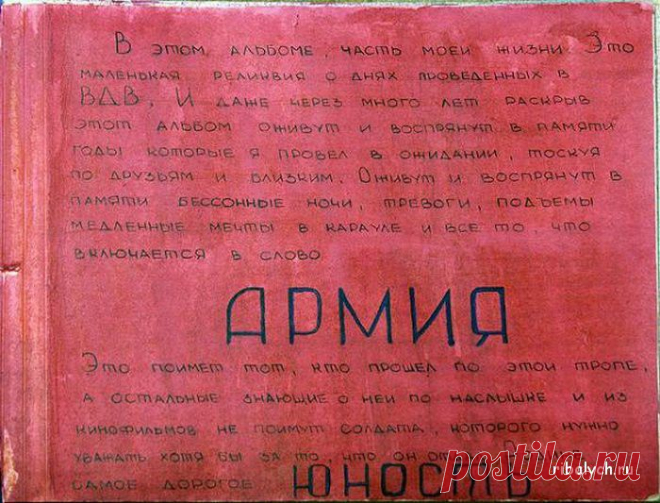 В ЭТОМ АЛЬБОМЕ, ЧАСТЬ МОЕЙ ЖИЗНИ. ЭТО
МАЛЕНЬКАЯ РЕЛИКВИЯ О ДНЯХ ПРОВЕДЕННЫХ В
ВДВ. И ДАЖЕ ЧЕРЕЗ МНОГО ЛЕТ РАСКРЫВ
ЭТОТ АЛЬБОМ ОЖИВУТ И ВОСПРЯНУТ В ПАМЯТИ
ГОДЫ КОТОРЫЕ Я ПРОВЕЛ В ОЖИДАНИИ, ТОСКУЯ
ПО ДРУЗЬЯМ И БЛИЗКИМ. ОЖИВУТ И ВОСПРЯНУТ В
ПАМЯТИ БЕССОННЫЕ НОЧИ, ТРЕВОГИ, ПОДЪЕМЫ
МЕДЛЕННЫЕ МЕЧТЫ В КАРАУЛЕ И ВСЕ ТО, ЧТО
ВКЛЮЧАЕТСЯ В СЛОВО
АРМИЯ
ЭТО ПОЙМЕТ ТОТ, КТО ПРОШЕЛ ПО ЭТОЙ ТРОПЕ,
А ОСТАЛЬНЫЕ ЗНАЮЩИЕ О НЕЙ ПО НАСЛЫШКЕ И ИЗ
КИНОФИЛЬМОВ НЕ ПОЙМУТ СОЛДАТА, КОТОРОГО НУЖНО
УВАЖАТЬ ХОТЯ БЫ ЗА ТО, ЧТО ОН
САМОЕ ДОРОГОЕ ЮНОСТЬ
ribalych.ru
postila.ru